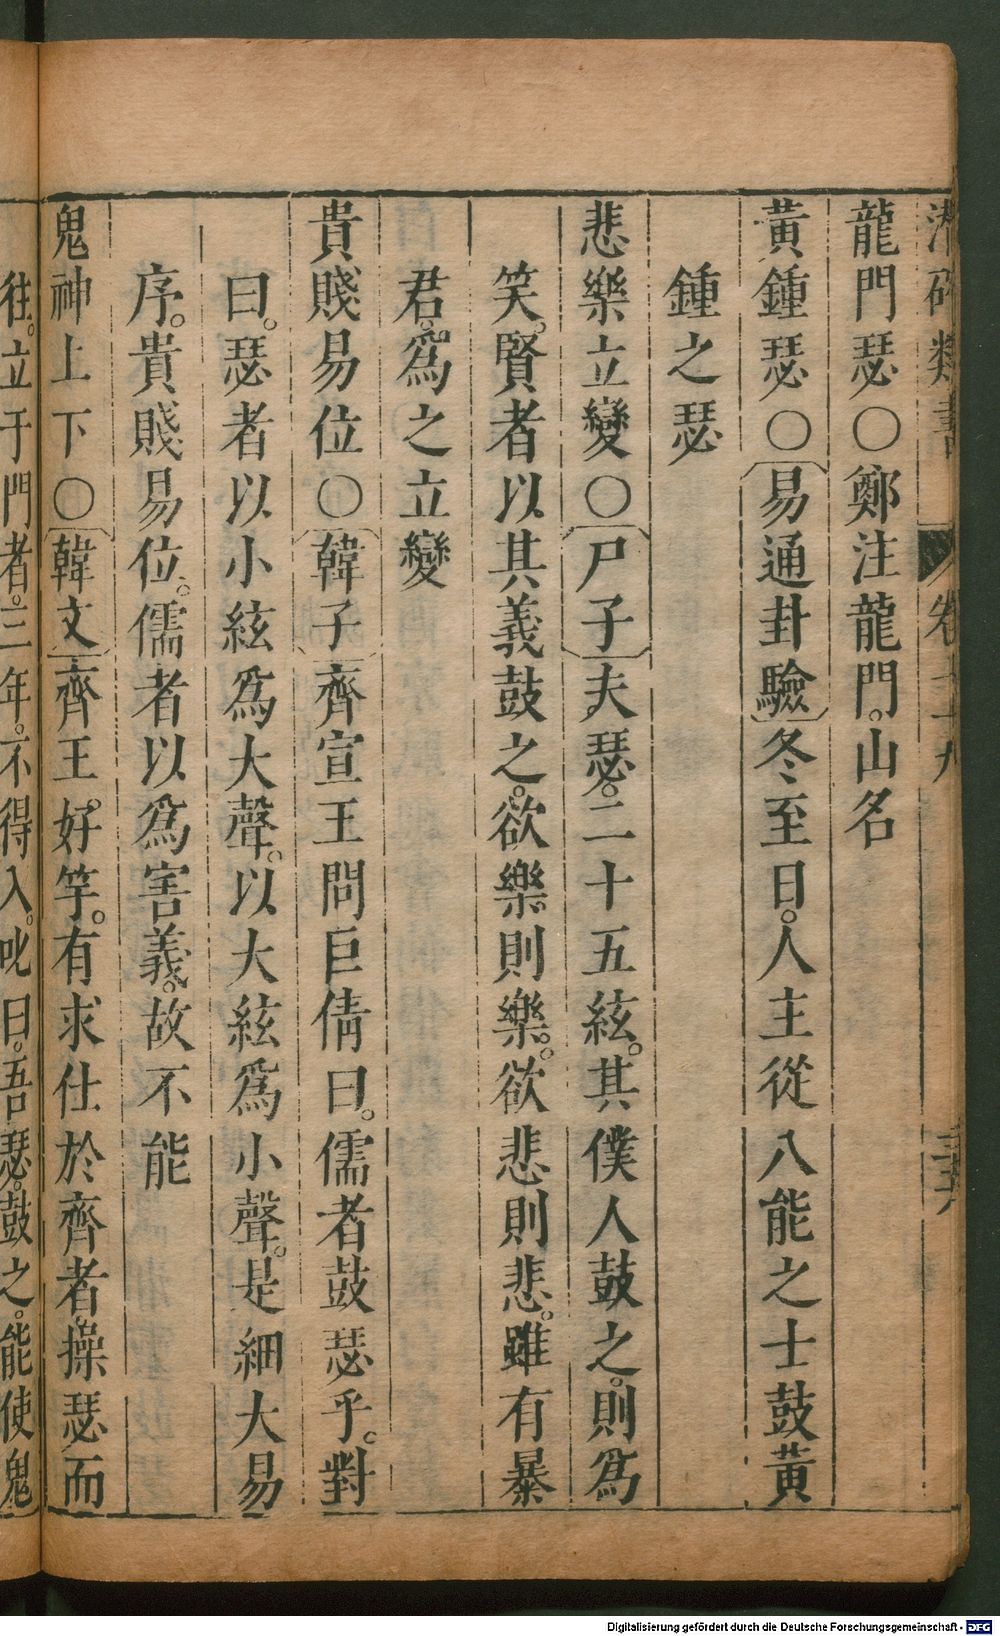 類書 卷二十九
龍門瑟〇鄭注龍門。山名
黃鍾瑟〇易通卦驗冬至日。人主從八能之士鼓黃
鍾之瑟
悲樂立變〇尸子夫瑟。二十五絃。其僕人鼓之。則為
笑。賢者以其義鼓之。欲樂則樂。欲悲則悲。雖有暴
君。爲之立變
貴賤易位〇韓子齊宣王問巨倩曰。儒者鼓瑟乎。對
曰。瑟者以小絃爲大聲。以大絃爲小聲。是細大易
序。貴賤易位。儒者以爲害義。故不能
鬼神上下〇韓文齊王。好竽。有求仕於齊者。操瑟而
往。立于門者。三年。不得入。叱曰。吾瑟。鼓之。能使鬼
Digitalisierung gefördert durch die Deutsche Forschungsgemeinschaft - DFG